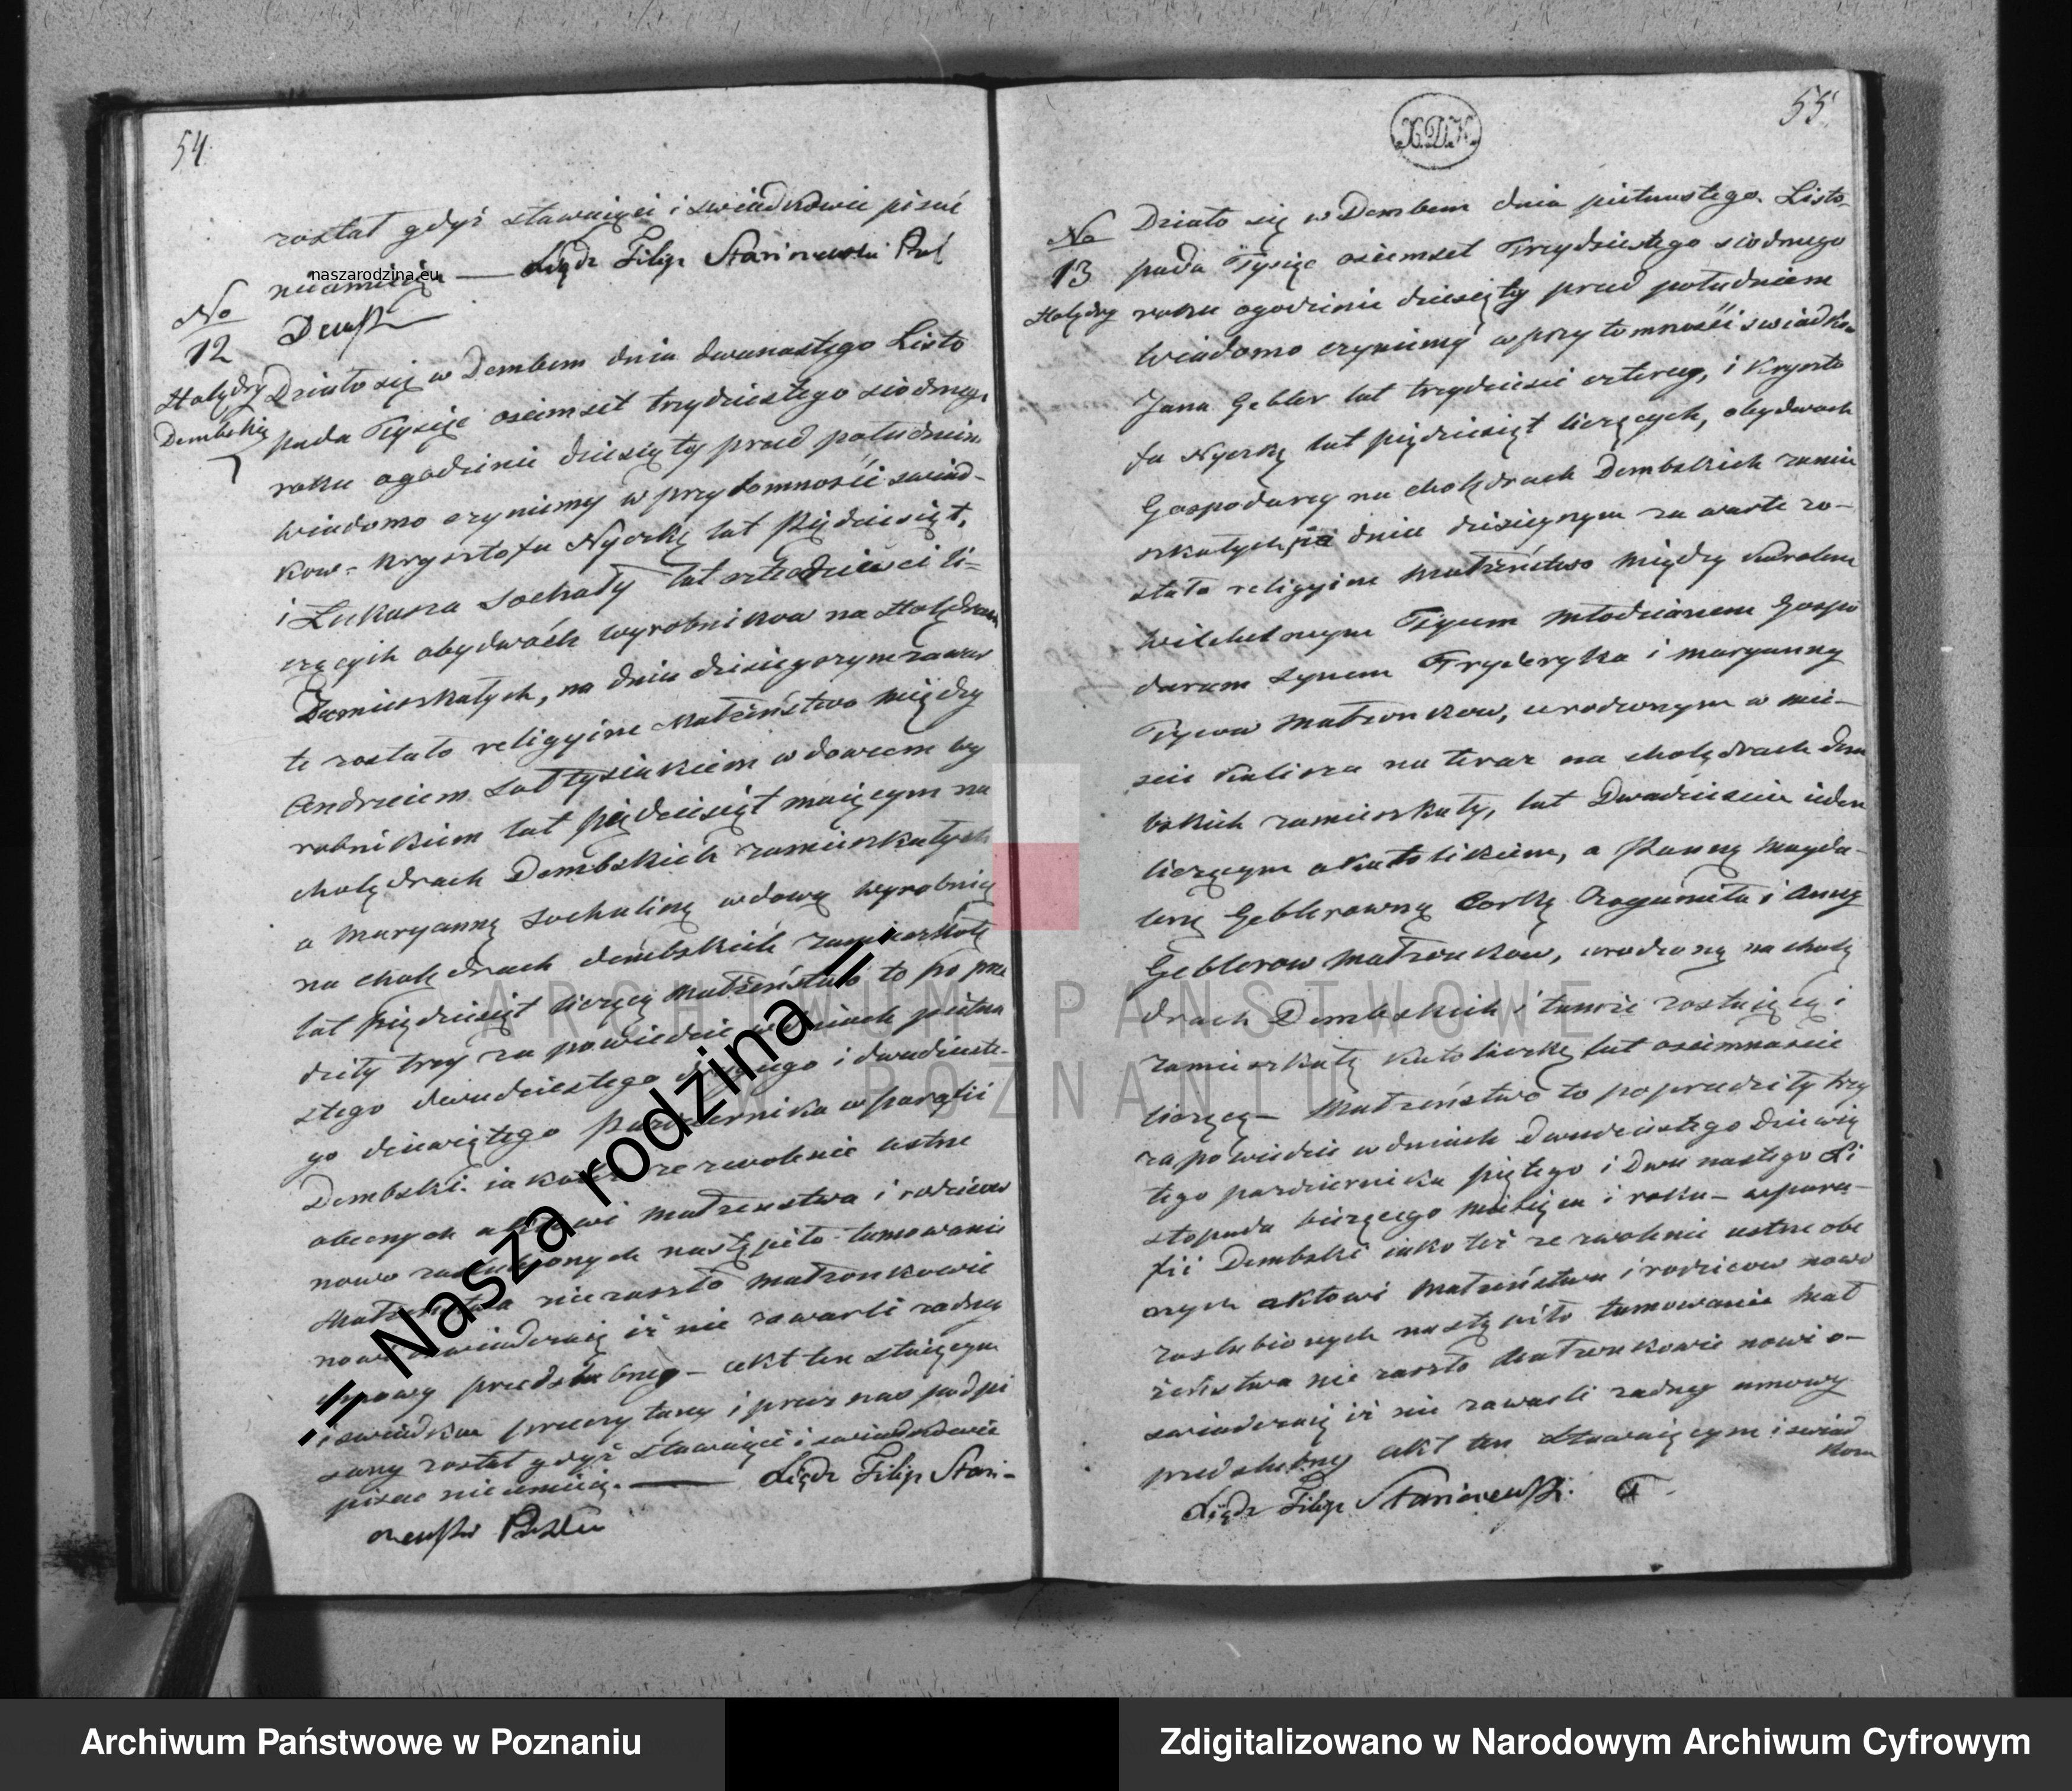 54
został gdyż stawaiący i swiadkowie pisać
nieumieią — Xiądz Filip Staniszewski Prob
Dembski
No 12
Holędry Dembskie
Działo się w Dembem dnia dwunastego Listo
pada Tysiąc osiemset trzydziestego siodmego
roku ogodzinie dziesięty przed południem
wiadomo czyniemy w przytomności swiad-
kow Krysztofa Nyczkę lat Pięćdziesiąt,
i Łukasza Sochały lat czterdzieści li=
czących obydwóch wyrobnikow na Holędrach
Zamieszkałych, na dniu dzisieyszym zawar
te zostało religyine Małżeństwo między
Andrzeiem Sołtysiakiem wdowcem wy
robnikiem lat pięćdziesiąt maiącym na
cholędrach Dembskich zamieszkałych
a Maryanną Sochaliną wdową wyrobnicą
na cholędrach dembskich zamieszkałą
lat pięćdziesiąt liczącą Małżeństwo to po prze
dziły trzy za powiedzie w dniach pietna
stego dwudziestego drugiego i dwudzieste-
go dziewiątego Pazdziernika w parafii
Dembski iako też ze zwolenie ustne
obecnych aktowi małzenstwa i rodzicow
nowo zaslubionych nastąpiło tamowanie
Małzenstwa nie zaszło małzonkowie
nowi oswiadczaią iż nie zawarli zadney
umowy przedslubney – akt ten staiącym
i swiadkom przeczytany i przez nas podpi
sany został gdyż stawaiące i swiadkowie
pisac nieumieią. — Xiądz Filip Stani-
szewski
55
X.D.K.
No 13
Holędry
Działo się w Dembem dnia pietnastego Listo-
pada Tysiąc osiemset Trzydziestego siodmego
roku ogodzinie dziesięty przed południem
Wiadomo czyniemy w przytomności swiadko-
Jana Gebler lat trzydzieści cztery, i Kryszto
fa Nyczkę lat pięćdziesiąt liczących, obydwoch
Gospodarzy na cholędrach Dembskich zamie
szkałych na dniu dzisieyszym za warte zo-
stało religyine Małżeństwo między Karolem
Wilchelmym Tycem Młodzianem Gospo
darzem synem Fryderyka i maryanny
Tycow Małzonkow, urodzonym w mie-
scie Kalisza na teraz na cholędrach dem
bskich zamieszkały, lat Dwadzieścia ieden
liczącym akatolikiem, a Panną Magda-
leną Geblerowną Corką Bogumiła i Anny
Geblerow Małzonkow, urodzoną na cholę
drach Dembskich i tamże zostaiącą i
zamieszkałą Katoliczką lat osiemnaście
liczącą – Małzeństwo to poprzedziły trzy
zapowiedzie w dniach Dwudziestego Dziewią
tego pazdziernika piątego i Dwunastego Li
stopada biezącego miesiąca i roku – w para-
fii Dembski iako też ze zwolenie ustne obe
cnych aktowi Małzeństwa i rodzicow nowo
zaslubionych nastąpiło tamowanie Mał
żeństwa nie zaszło Małzonkowie nowi o-
swiadczaią iż nie zawarli zadney umowy
przedslubney akt ten stawaiącym i swiad
kom
Xiądz Filip Staniszewski
naszarodzina.eu
= Nasza rodzina =
ARCHIWUM PAŃSTWOWE
W POZNANIU
Archiwum Państwowe w Poznaniu
Zdigitalizowano w Narodowym Archiwum Cyfrowym